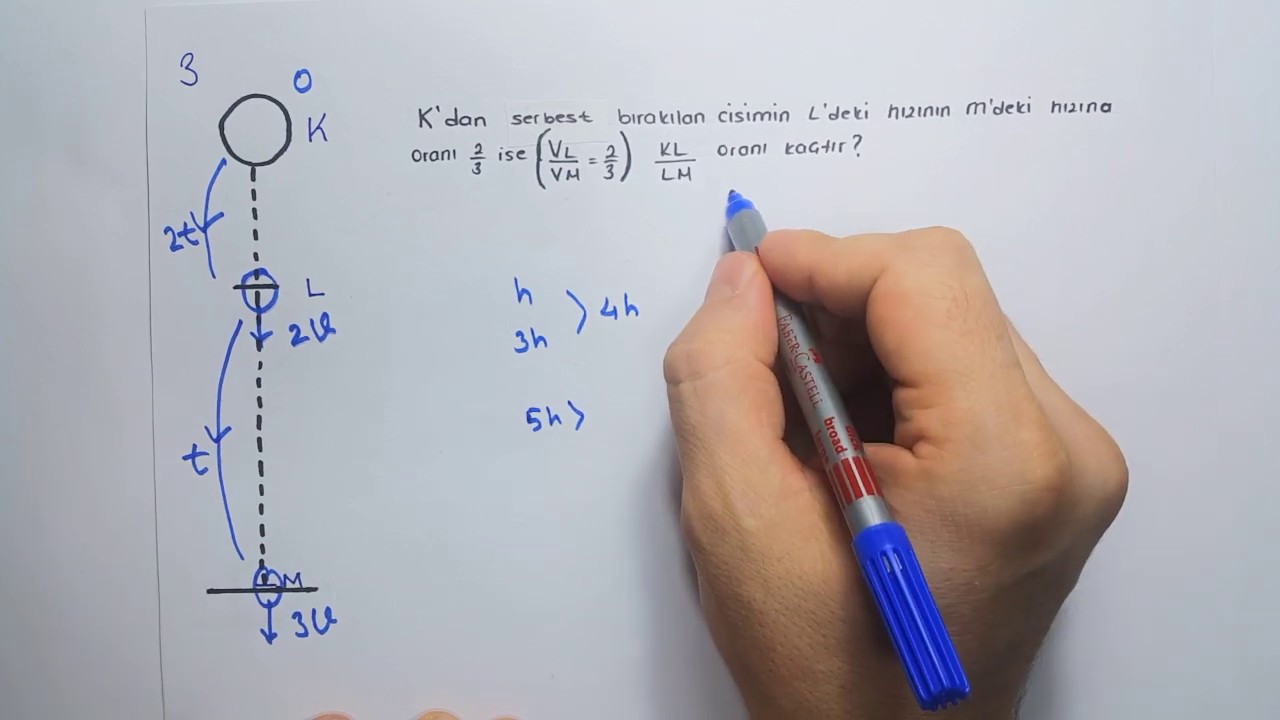 3
O
K
K'dan serbest bırakılan cisimin L'deki hızının m'deki hızına
oranı 2/3 ise (VL/VM = 2/3) KL/LM oranı kaçtır?
2t
L
2ϑ
h
3h
> 4h
5h >
t
M
3ϑ
FABER-CASTELL
broad